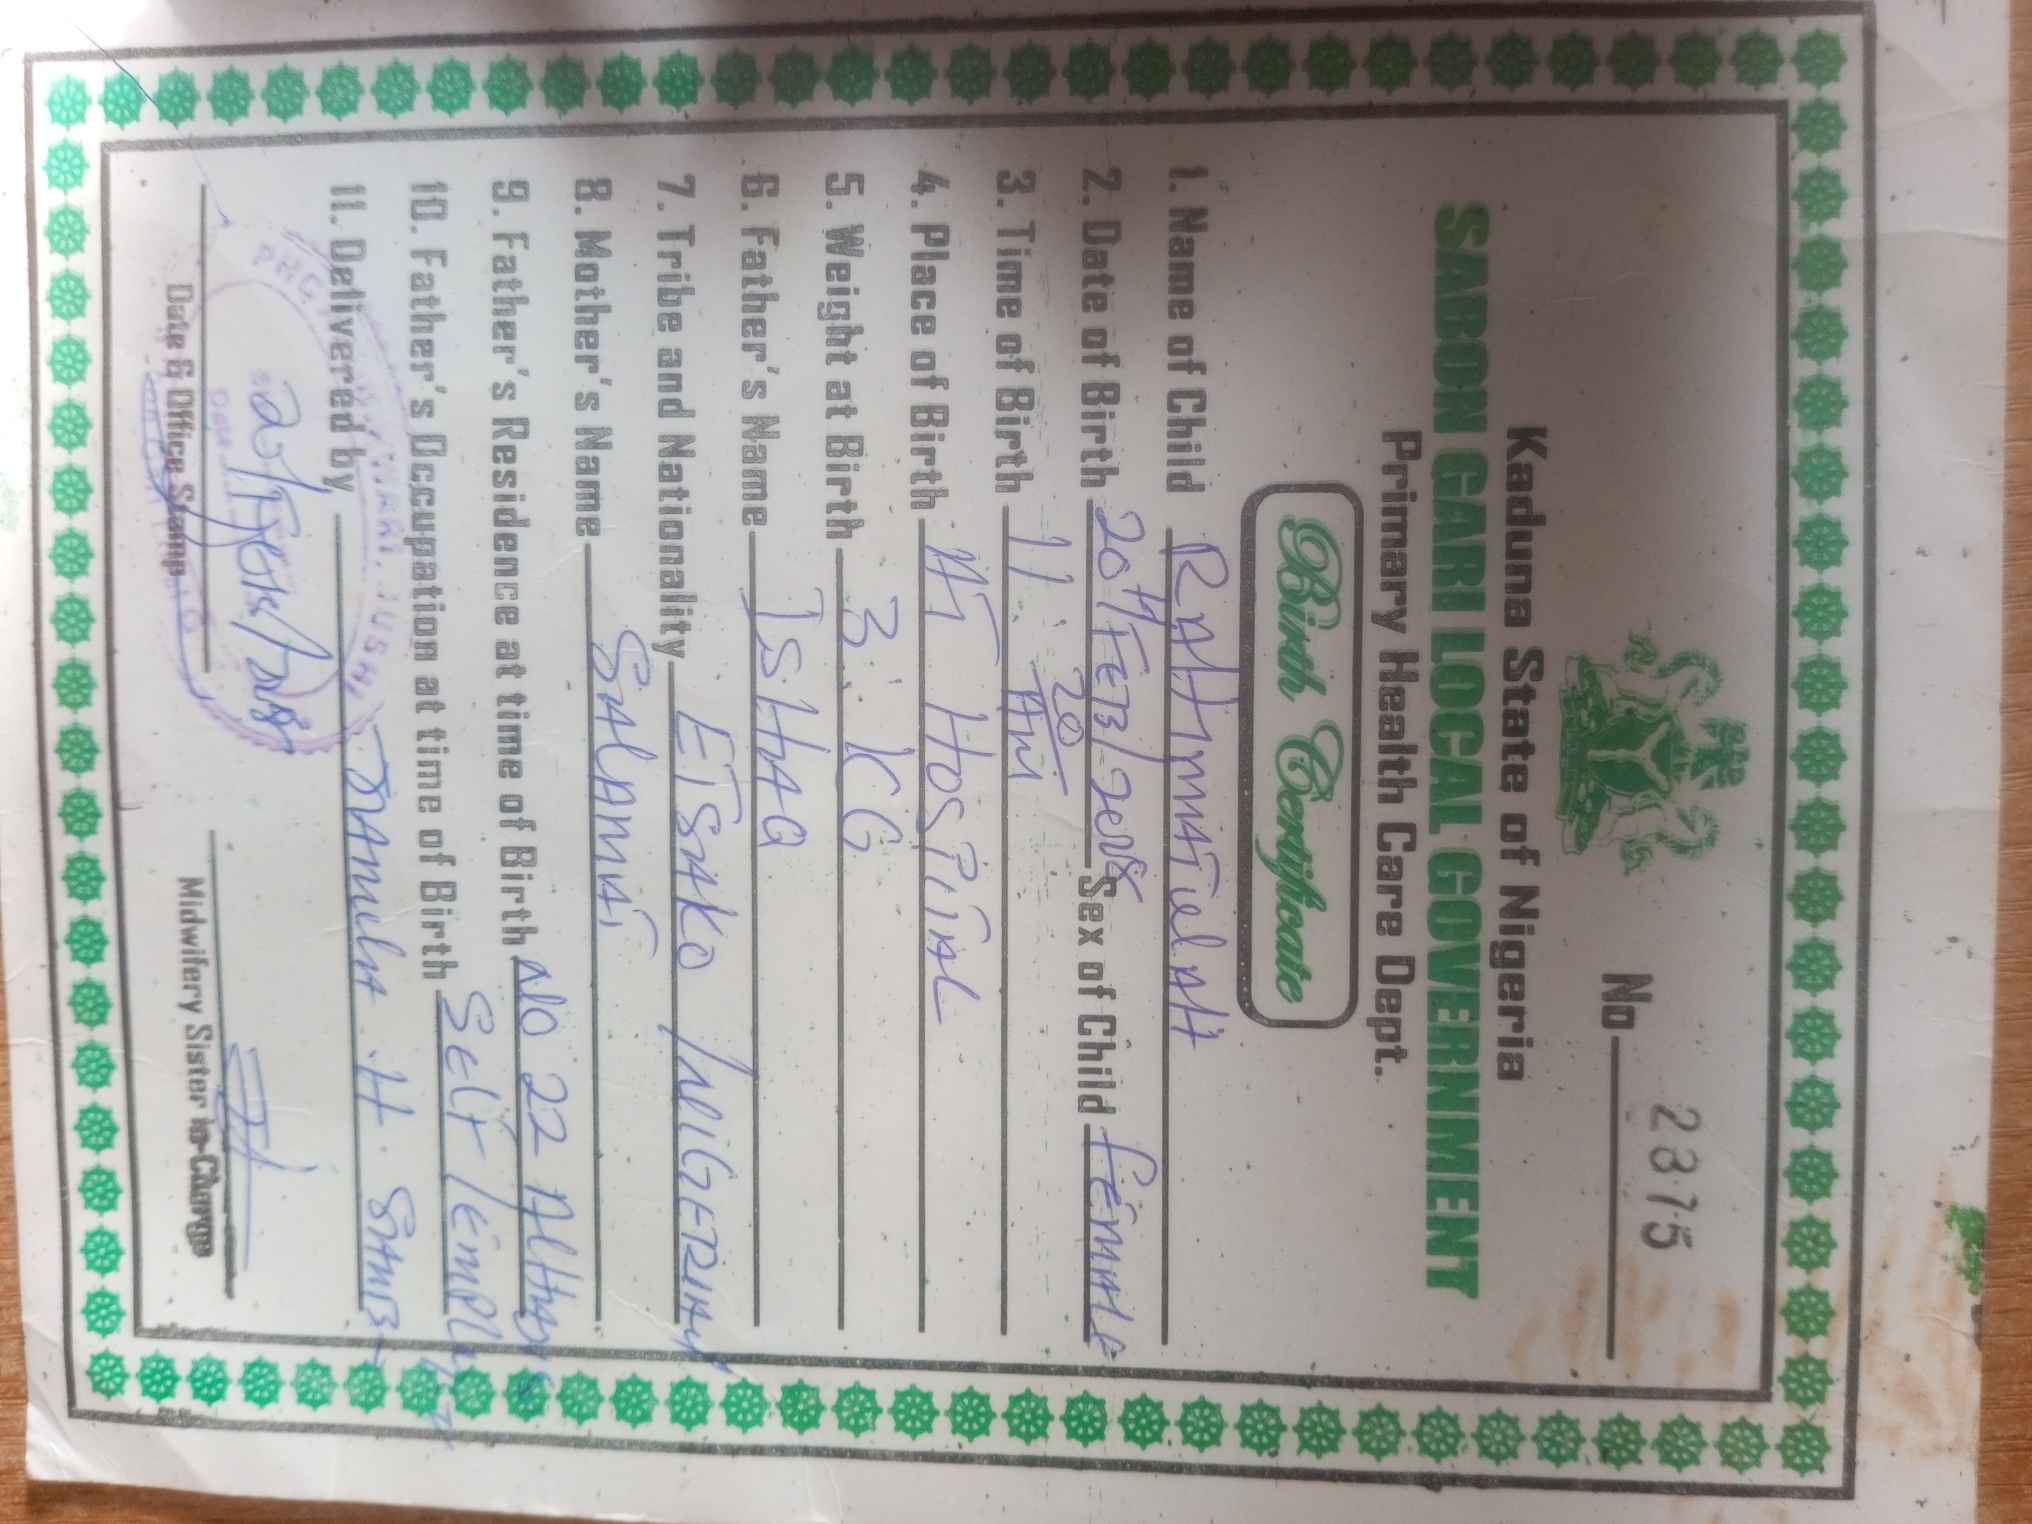 No 2875
Kaduna State of Nigeria
SABON GARI LOCAL GOVERNMENT
Primary Health Care Dept.
Birth Certificate
1. Name of Child RAHAMATULAH
2. Date of Birth 20th/FEB/2008 Sex of Child Female
3. Time of Birth 11 20 AM
4. Place of Birth HOSPITAL
5. Weight at Birth 3 KG
6. Father's Name ISHAQ
7. Tribe and Nationality ETSAKO / NIGERIAN
8. Mother's Name SALAMAT
9. Father's Residence at time of Birth NO 22
10. Father's Occupation at time of Birth SELF /
11. Delivered by H.
Date & Office Stamp
Midwifery Sister in-Charge